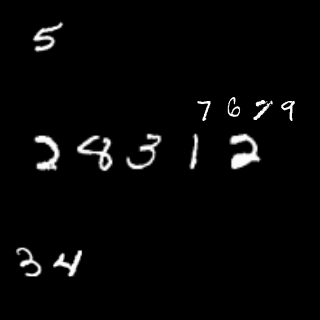 5
7 6 9
2 8 3 1 2
3 4